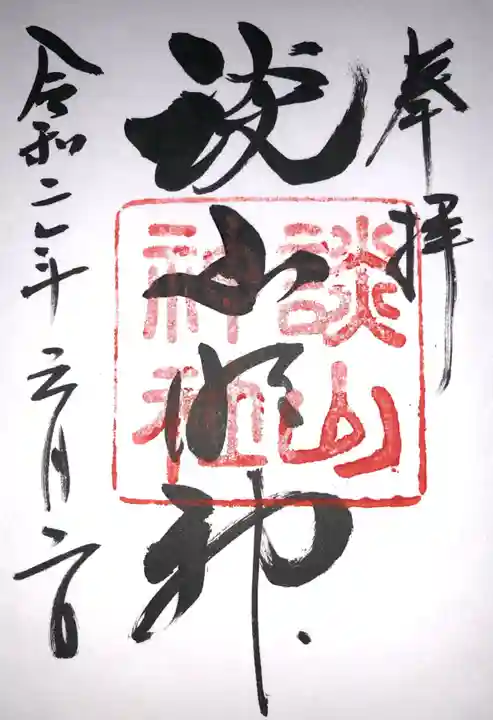 奉拝
談山明神
談山
神社
令和二年三月二日